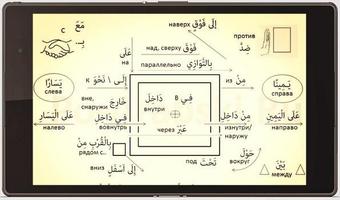 наверх إِلَى فَوْقَ
مَعَ
с
بِـ
над, сверху فَوْقَ
против
ضِدُّ
عَلَى
на
параллельно بِالتَّوَازِي
к إِلَى \ نَحْوَ
из مِنْ
يَسَارًا
слева
вне, снаружи خَارِجَ
в فِي
دَاخِلَ
внутри
يَمِينًا
справа
عَلَى الْيَسَارِ
налево
فِي دَاخِلِ
вовнутрь
через عَبْرَ
مِنْ دَاخِلِ
изнутри/наружу
عَلَى الْيَمِينِ
направо
بِالْقُرْبِ مِنْ
рядом с...
вниз إِلَى أَسْفَلَ
под تَحْتَ
حَوْلَ
вокруг
بَيْنَ
между